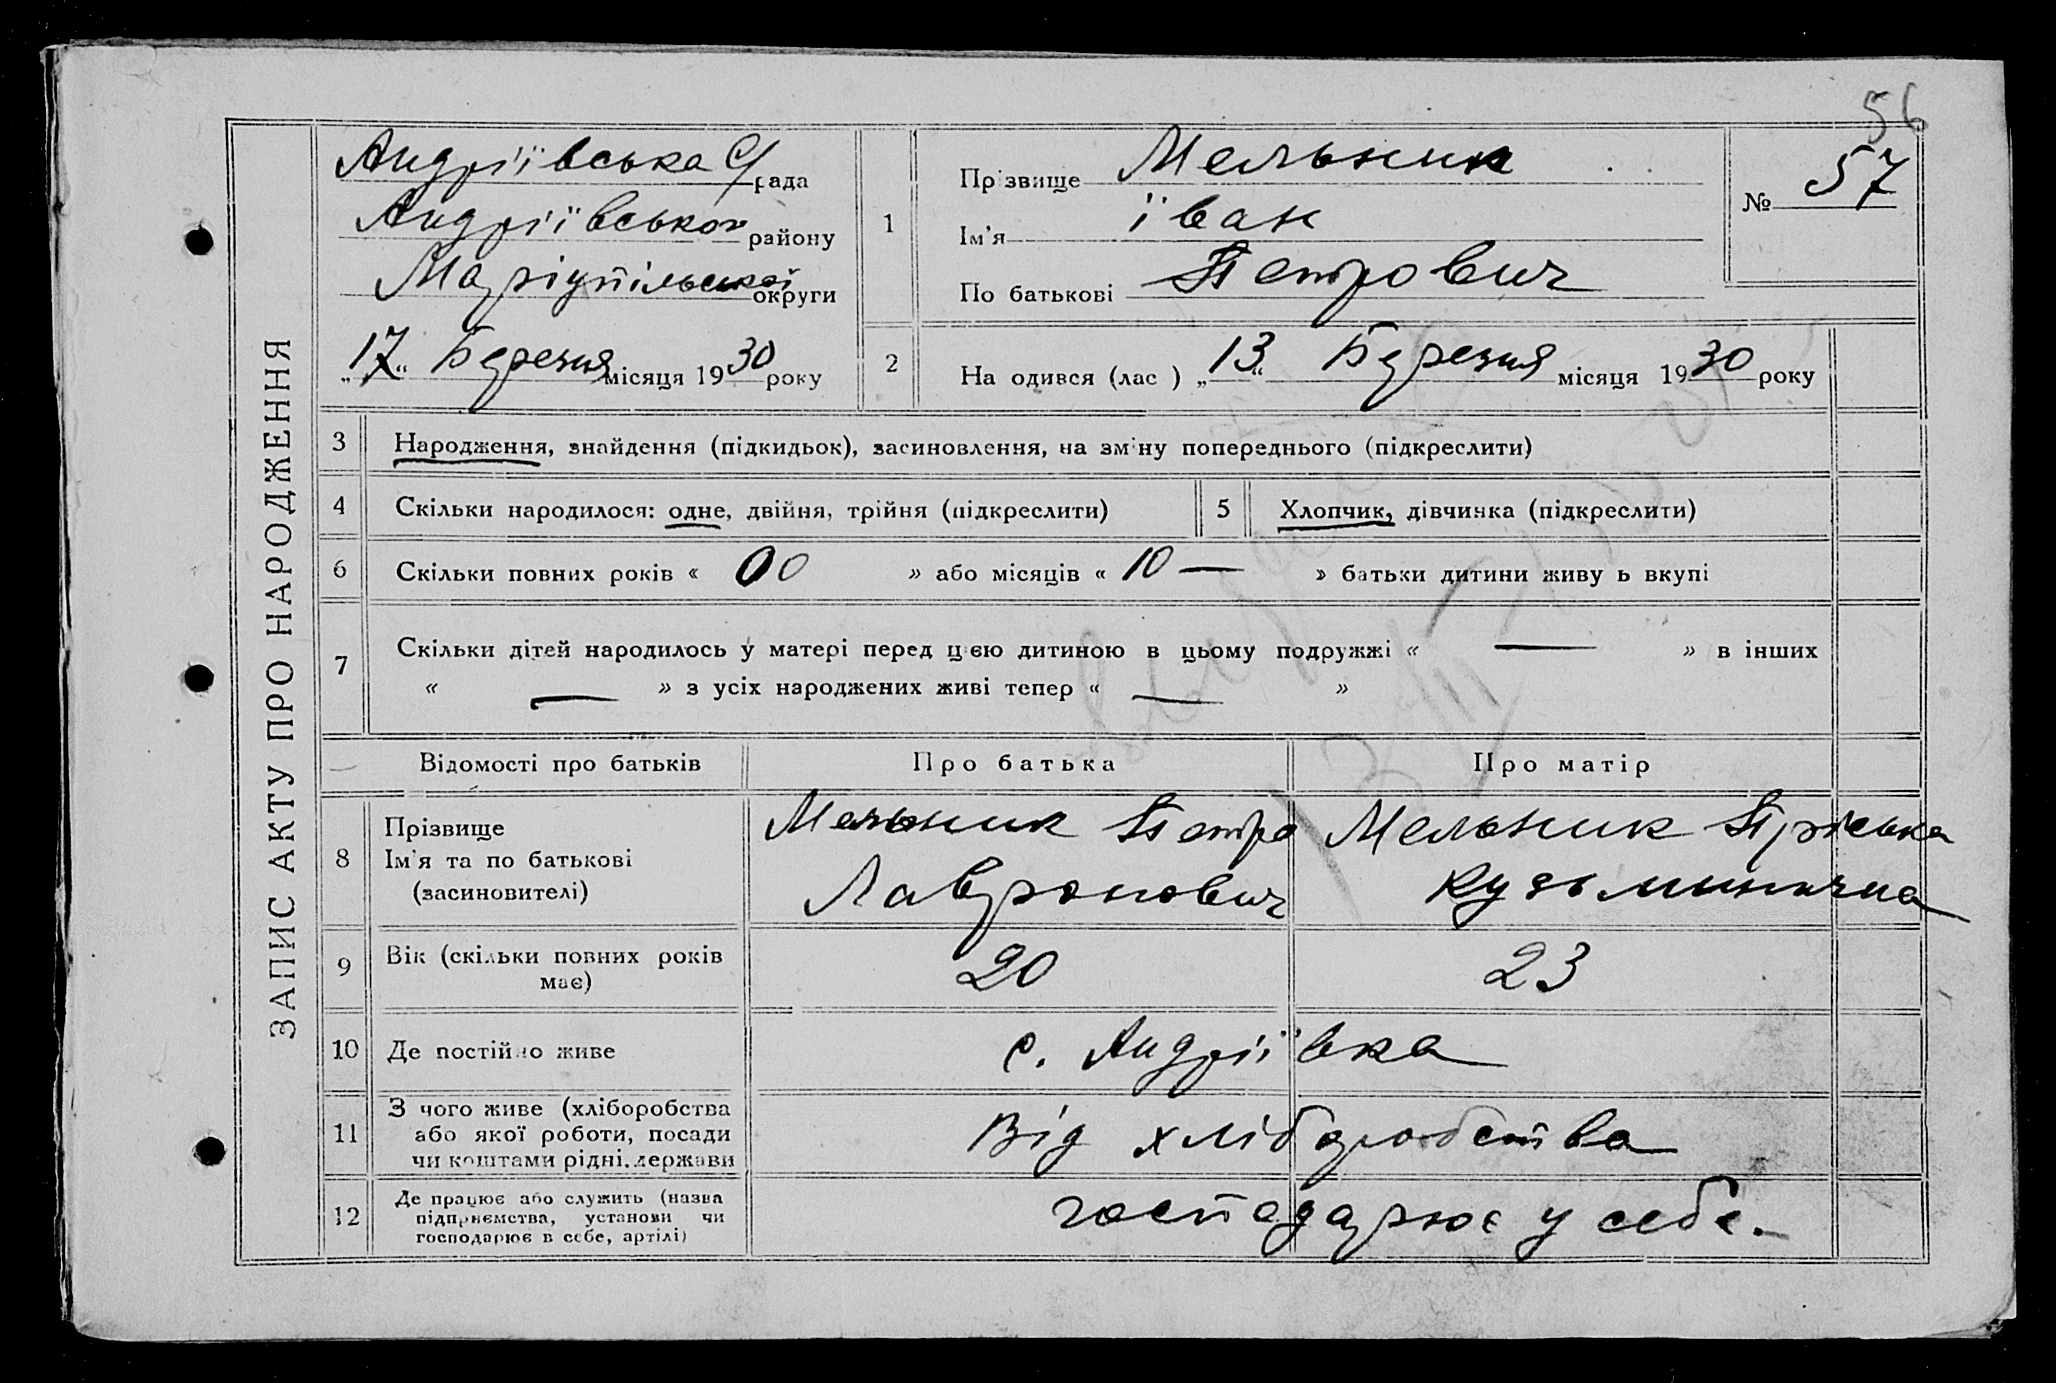 56
ЗАПИС АКТУ ПРО НАРОДЖЕННЯ
Андріївська С/рада
Андріївського району
Маріупільської округи
„17“ Березня місяця 1930 року
1
Прізвище Мельник
Ім'я їван
По батькові Петрович
№ 57
2 На одився (лас ) „13“ Березня місяця 1930 року
3 Народження, знайдення (підкидьок), засиновлення, на зміну попереднього (підкреслити)
4 Скільки народилося: одне, двійня, трійня (підкреслити)
5 Хлопчик, дівчинка (підкреслити)
6 Скільки повних років « 00 » або місяців « 10 — » батьки дитини живу ь вкупі
7 Скільки дітей народилось у матері перед цією дитиною в цьому подружжі « — » в інших
« — » з усіх народжених живі тепер « — »
Відомості про батьків Про батька Про матір
8
Прізвище
Ім'я та по батькові
(засиновителі)
Мельник Петро
Лавронович
Мельник Пріська
Кузьминична
9 Вік (скільки повних років
має)
20 23
10 Де постійно живе с. Андріївка
11
З чого живе (хліборобства
або якої роботи, посади
чи коштами рідні, держави
Від хліборобства
12
Де працює або служить (назва
підприємства, установи чи
господарює в себе, артілі)
господарює у себе.